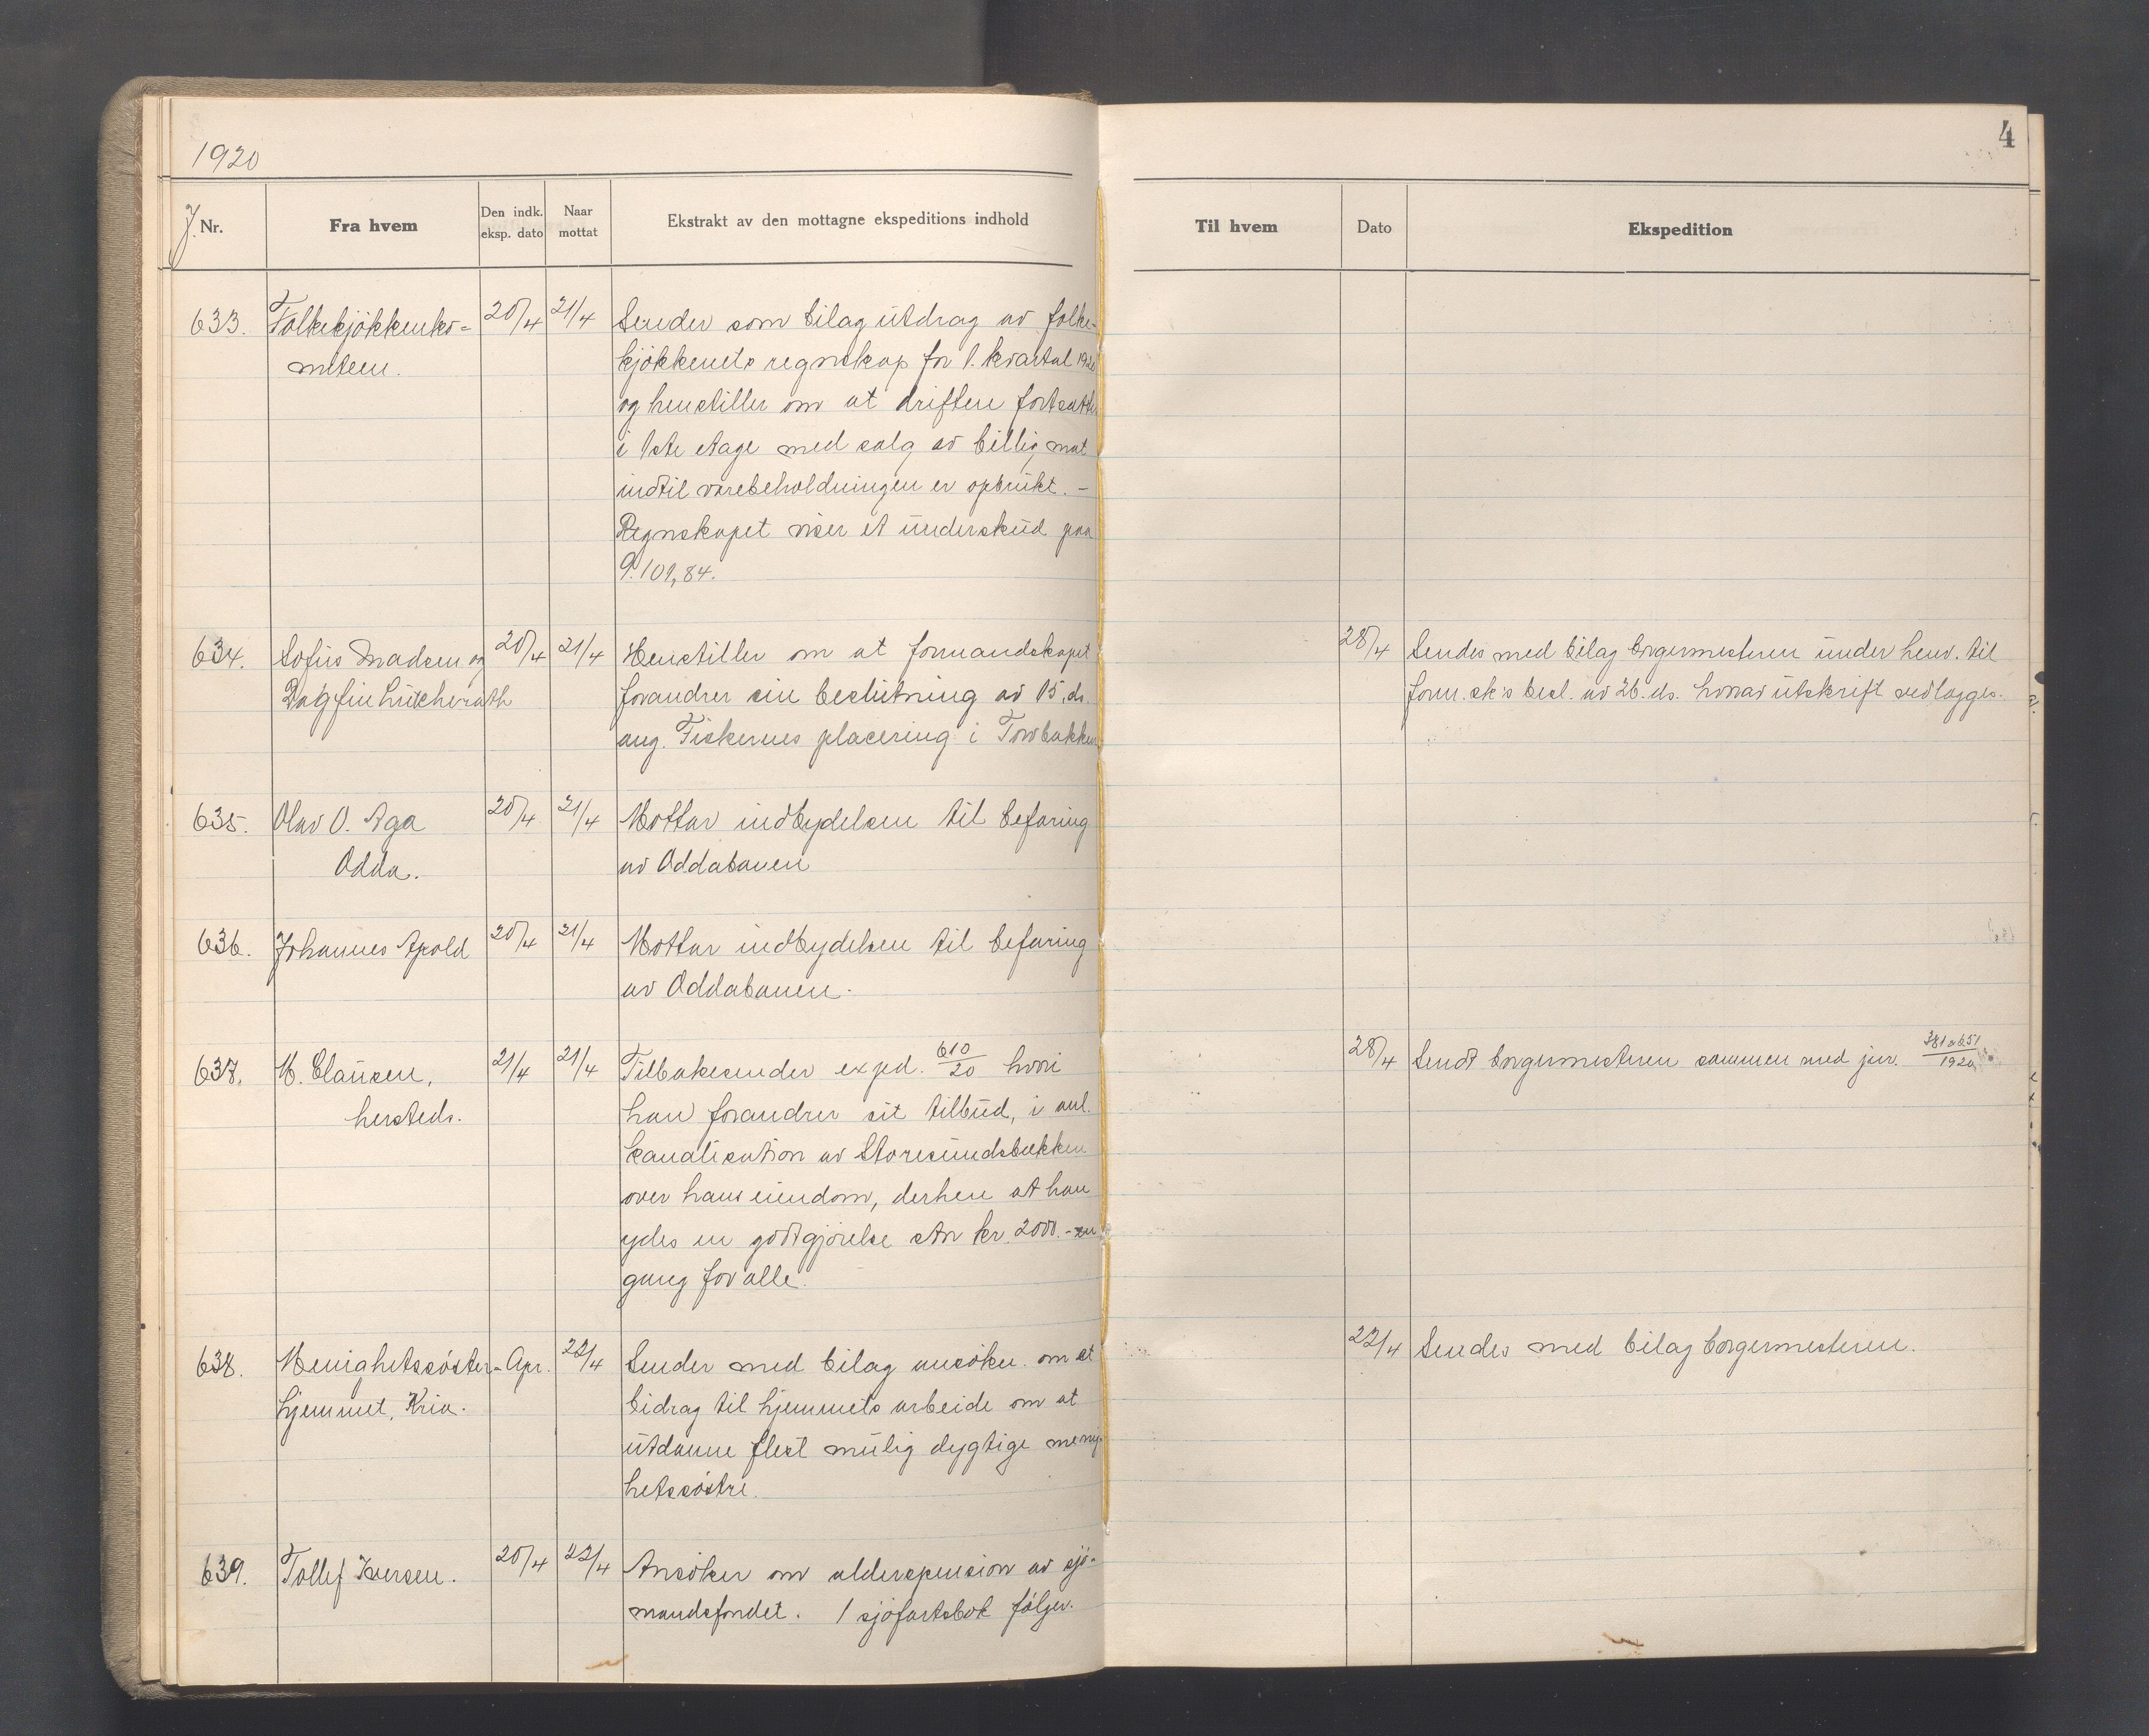 1920
4
J. Nr.
Fra hvem
Den indk. eksp. dato
Naar mottat
Ekstrakt av den mottagne ekspeditions indhold
Til hvem
Dato
Ekspedition
633. Folkekjøkkenko- 20/4 21/4 Sender som bilag utdrag av folke-
miteen. kjøkkenets regnskap for 1. kvartal 1920
og henstiller om at driften fortsætter
i 1ste etage med salg av billig mat
indtil varebeholdningen er opbrukt. –
Regnskapet viser et underskud paa
9.109,84.
634. Sofus Madsen og 20/4 21/4 Henstiller om at formandskapet 28/4 Sendes med bilag borgermesteren under henv. til
Dagfin Lütcherath forandrer sin beslutning av 15. ds. form.sk's besl. av 26. ds. hvorav utskrift vedlægges.
ang. Fiskernes placering i Torvbakken
635. Olav O. Aga 20/4 21/4 Mottar indbydelsen til befaring
Odda. av Oddabanen
636. Johannes Apold 20/4 21/4 Mottar indbydelsen til befaring
av Oddabanen.
637. M. Clausen, 21/4 21/4 Tilbakesender exped. 610/20 hvori 28/4 Sendt borgermesteren sammen med jnr. 381 o 651/1920
hersteds. han forandrer sit tilbud, i anl.
kanalisation av Storesundsbækken
over hans eiendom, derhen at han
ydes en godtgjørelse stor kr. 2000.- en
gang for alle.
638. Menighetssøster- Apr. 22/4 Sender med bilag ansøkn. om et 22/4 Sendes med bilag borgermesteren.
hjemmet, Kria. bidrag til hjemmets arbeide om at
utdanne flest mulig dygtige menig-
hetssøstre.
639. Tollef Iversen. 20/4 22/4 Ansøker om alderspension av sjø-
mandsfondet. 1 sjøfartsbok følger.